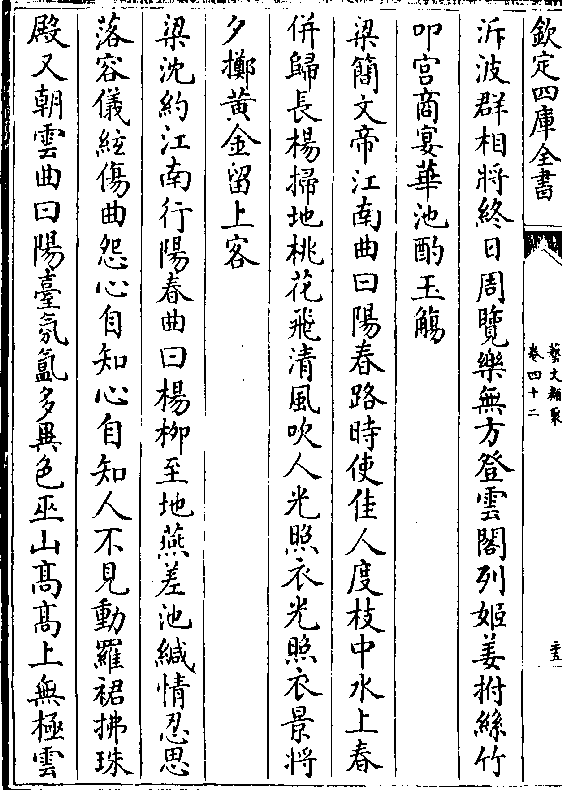 欽定四庫全書
藝文類聚
卷四十二
泝波群相將終日周覽樂無方登雲閣列姬姜拊絲竹
叩宫商宴華池酌玉觴
梁簡文帝江南曲曰陽春路時使佳人度枝中水上春
併歸長楊掃地桃花飛清風吹人光照衣光照衣景將
夕擲黃金留上客
梁沈約江南行陽春曲曰楊柳至地燕差池緘情忍思
落容儀絃傷曲怨心自知心自知人不見動羅裙拂珠
殿又朝雲曲曰陽臺氛氳多異色巫山髙髙上無極雲